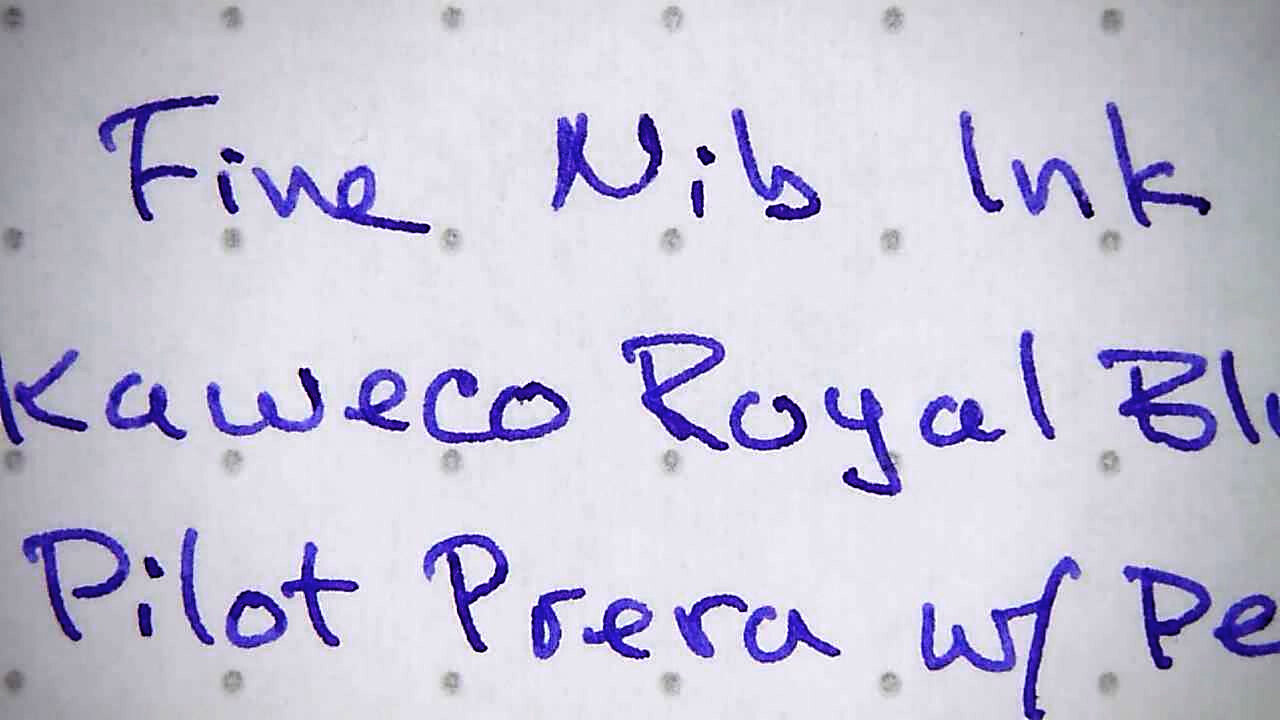 Fine Nib Ink
Kaweco Royal Blu
Pilot Prera w/ Pe